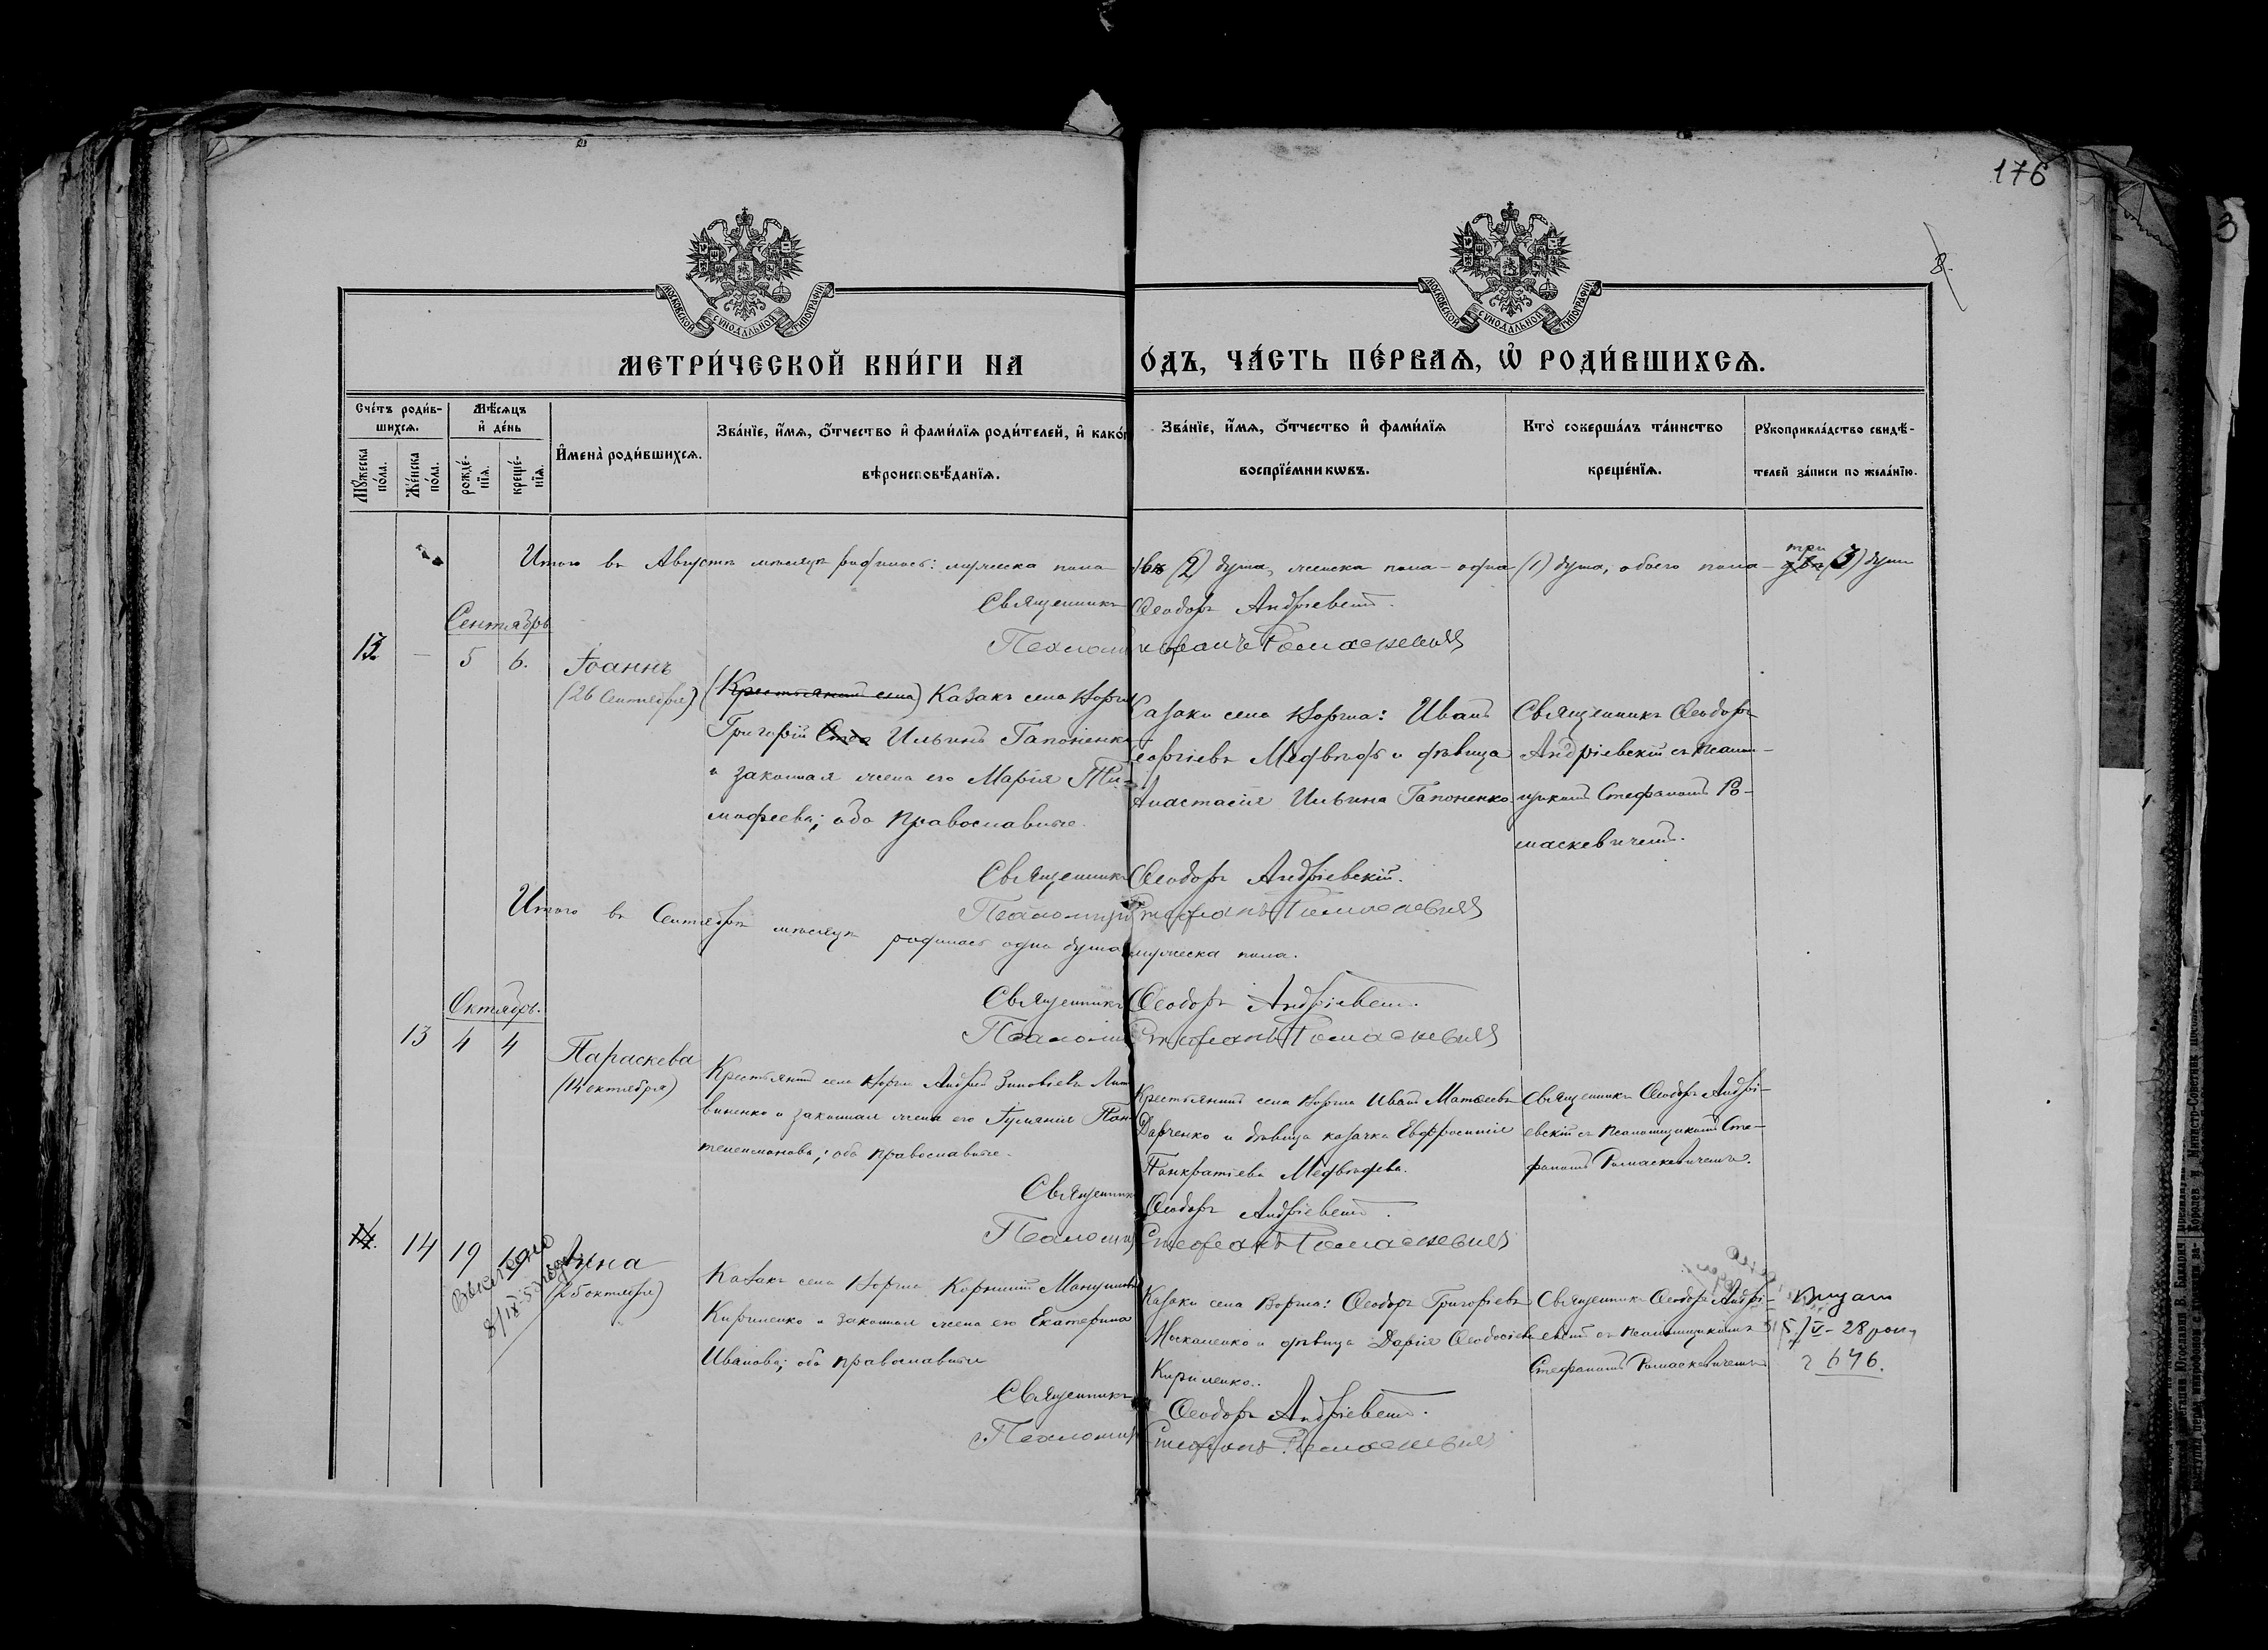 176
8.
МОСКОВСКОЙ СУНОДАЛЬНОЙ ТИПОГРАФІИ
МОСКОВСКОЙ СУНОДАЛЬНОЙ ТИПОГРАФІИ
МЕТРИ́ЧЕСКОЙ КНИ́ГИ НА
О́ДЪ, ЧА́СТЬ ПЕ́РВАѦ, Ѽ РОДИ́ВШИХСѦ.
Сче́тъ роди́в-
шихсѧ.
Мѣ́сѧцъ
и҆ де́нь
Мꙋ́жеска
по́ла.
Же́нска
по́ла.
рожде́-
нїѧ.
креще́-
нїѧ.
И҆мена̀ роди́вшихсѧ.
Зва́нїе, и҆́мѧ, ѻ҆́тчество и҆ фами́лїѧ роди́телей, и҆ како́г
вѣроисповѣ́данїѧ.
Зва́нїе, и҆́мѧ, ѻ҆́тчество и҆ фами́лїѧ
воспрїе́мникѡвъ.
Кто̀ соверша́лъ та́инство
креще́нїѧ.
Рꙋкоприкла́дство свидѣ́-
телей за́писи по жела́нїю.
Итого въ Августѣ мѣсяцѣ родилось: мужеска пола (2) душа, женска пола - одна (1) душа, обоего пола - три (3) душ
Священникъ Ѳеодоръ Андріевскій.
Псаломщ Стефанъ Ромаскевичъ
Сентябрь
13. - 5 6. Іоаннъ
(26 Сентября)
(Крестьянинъ села) Казакъ села Ворги
Григорій Ильинъ Гапоненко
и законная жена его Марія Ти-
мофеева; оба православные.
Казаки села Ворги: Иванъ
Георгіевъ Медвѣдь и дѣвица
Анастасія Ильина Гапоненко
Священникъ Ѳеодоръ
Андріевскій съ псалом-
щикомъ Стефаномъ Ро-
маскевичемъ.
Священникъ Ѳеодоръ Андріевскій.
Псаломщи Стефанъ Ромаскевичъ
Итого въ Сентябрѣ мѣсяцѣ родилась одна душа мужеска пола.
Священникъ Ѳеодоръ Андріевскій.
Псаломщ Стефанъ Ромаскевичъ
Октябрь.
13 4 4 Параскева
(14 октября)
Крестьянинъ села Ворги Андрей Зиновіевъ Лит
виненко и законная жена его Іуліанія Пан
телеимонова; оба православные.
Крестьянинъ села Ворги Иванъ Матѳеевъ
Дарченко и дѣвица казачка Евфросинія
Панкратіева Медвѣдева.
Священникъ Ѳеодоръ Андрі-
евскій съ псаломщикомъ Сте-
фаномъ Ромаскевичемъ.
Священник Ѳеодоръ Андріевскій.
Псаломщ Стефанъ Ромаскевичъ
14. 14 19 19 Анна
(25 октября)
Казакъ села Ворги Корнилій
Кириленко и законная жена его Екатерина
Иванова; оба православные
Казаки села Ворги: Ѳеодоръ Григорьевъ
Москаленко и дѣвица Дарія Ѳеодосіева
Кириленко.
Священникъ Ѳеодоръ Андрі-
евскій съ псаломщикомъ
Стефаномъ Ромаскевичемъ
15/V-28
646.
Священникъ Ѳеодоръ Андріевскій.
Псаломщ Стефанъ Ромаскевичъ